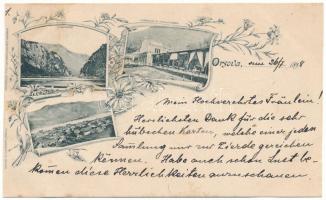 Orsova, am 26/7. 1898
Mein Hochverehrtes Fräulein!
Herzlichsten Dank für die sehr
hübschen Karten, welche einer jeden
Sammlung nur zur Zierde gereichen
können. Habe auch schon Lust be-
kommen diese Herrlichkeiten anzuschauen.